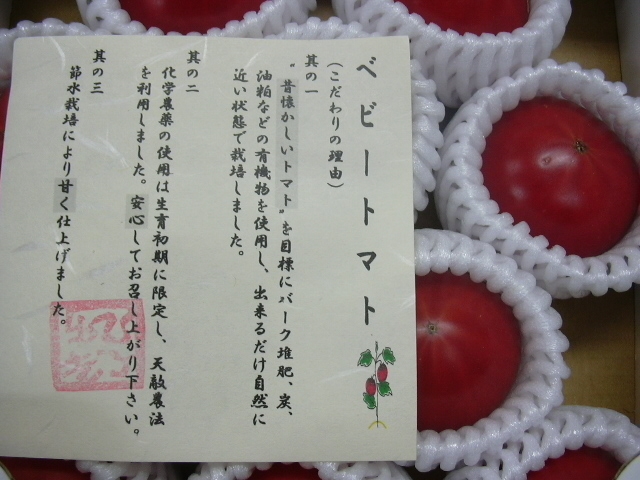 ベビートマト
(こだわりの理由)
其の一
"昔懐かしいトマト"を目標にバーク堆肥、炭、
油粕などの有機物を使用し、出来るだけ自然に
近い状態で栽培しました。
其の二
化学農薬の使用は生育初期に限定し、天敵農法
を利用しました。安心してお召し上がり下さい。
其の三
節水栽培により甘く仕上げました。